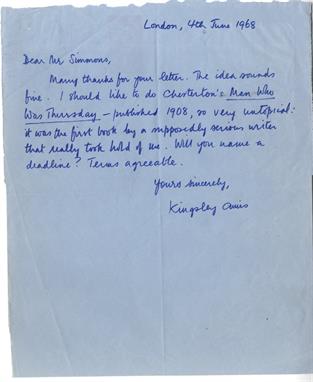 London, 4th June 1968
Dear Mr Simmons,
Many thanks for your letter. The idea sounds
fine. I should like to do Chesterton's Man Who
Was Thursday – published 1908, so very untopical:
it was the first book by a supposedly serious writer
that really took hold of me. Will you name a
deadline? Terms agreeable.
Yours sincerely,
Kingsley Amis